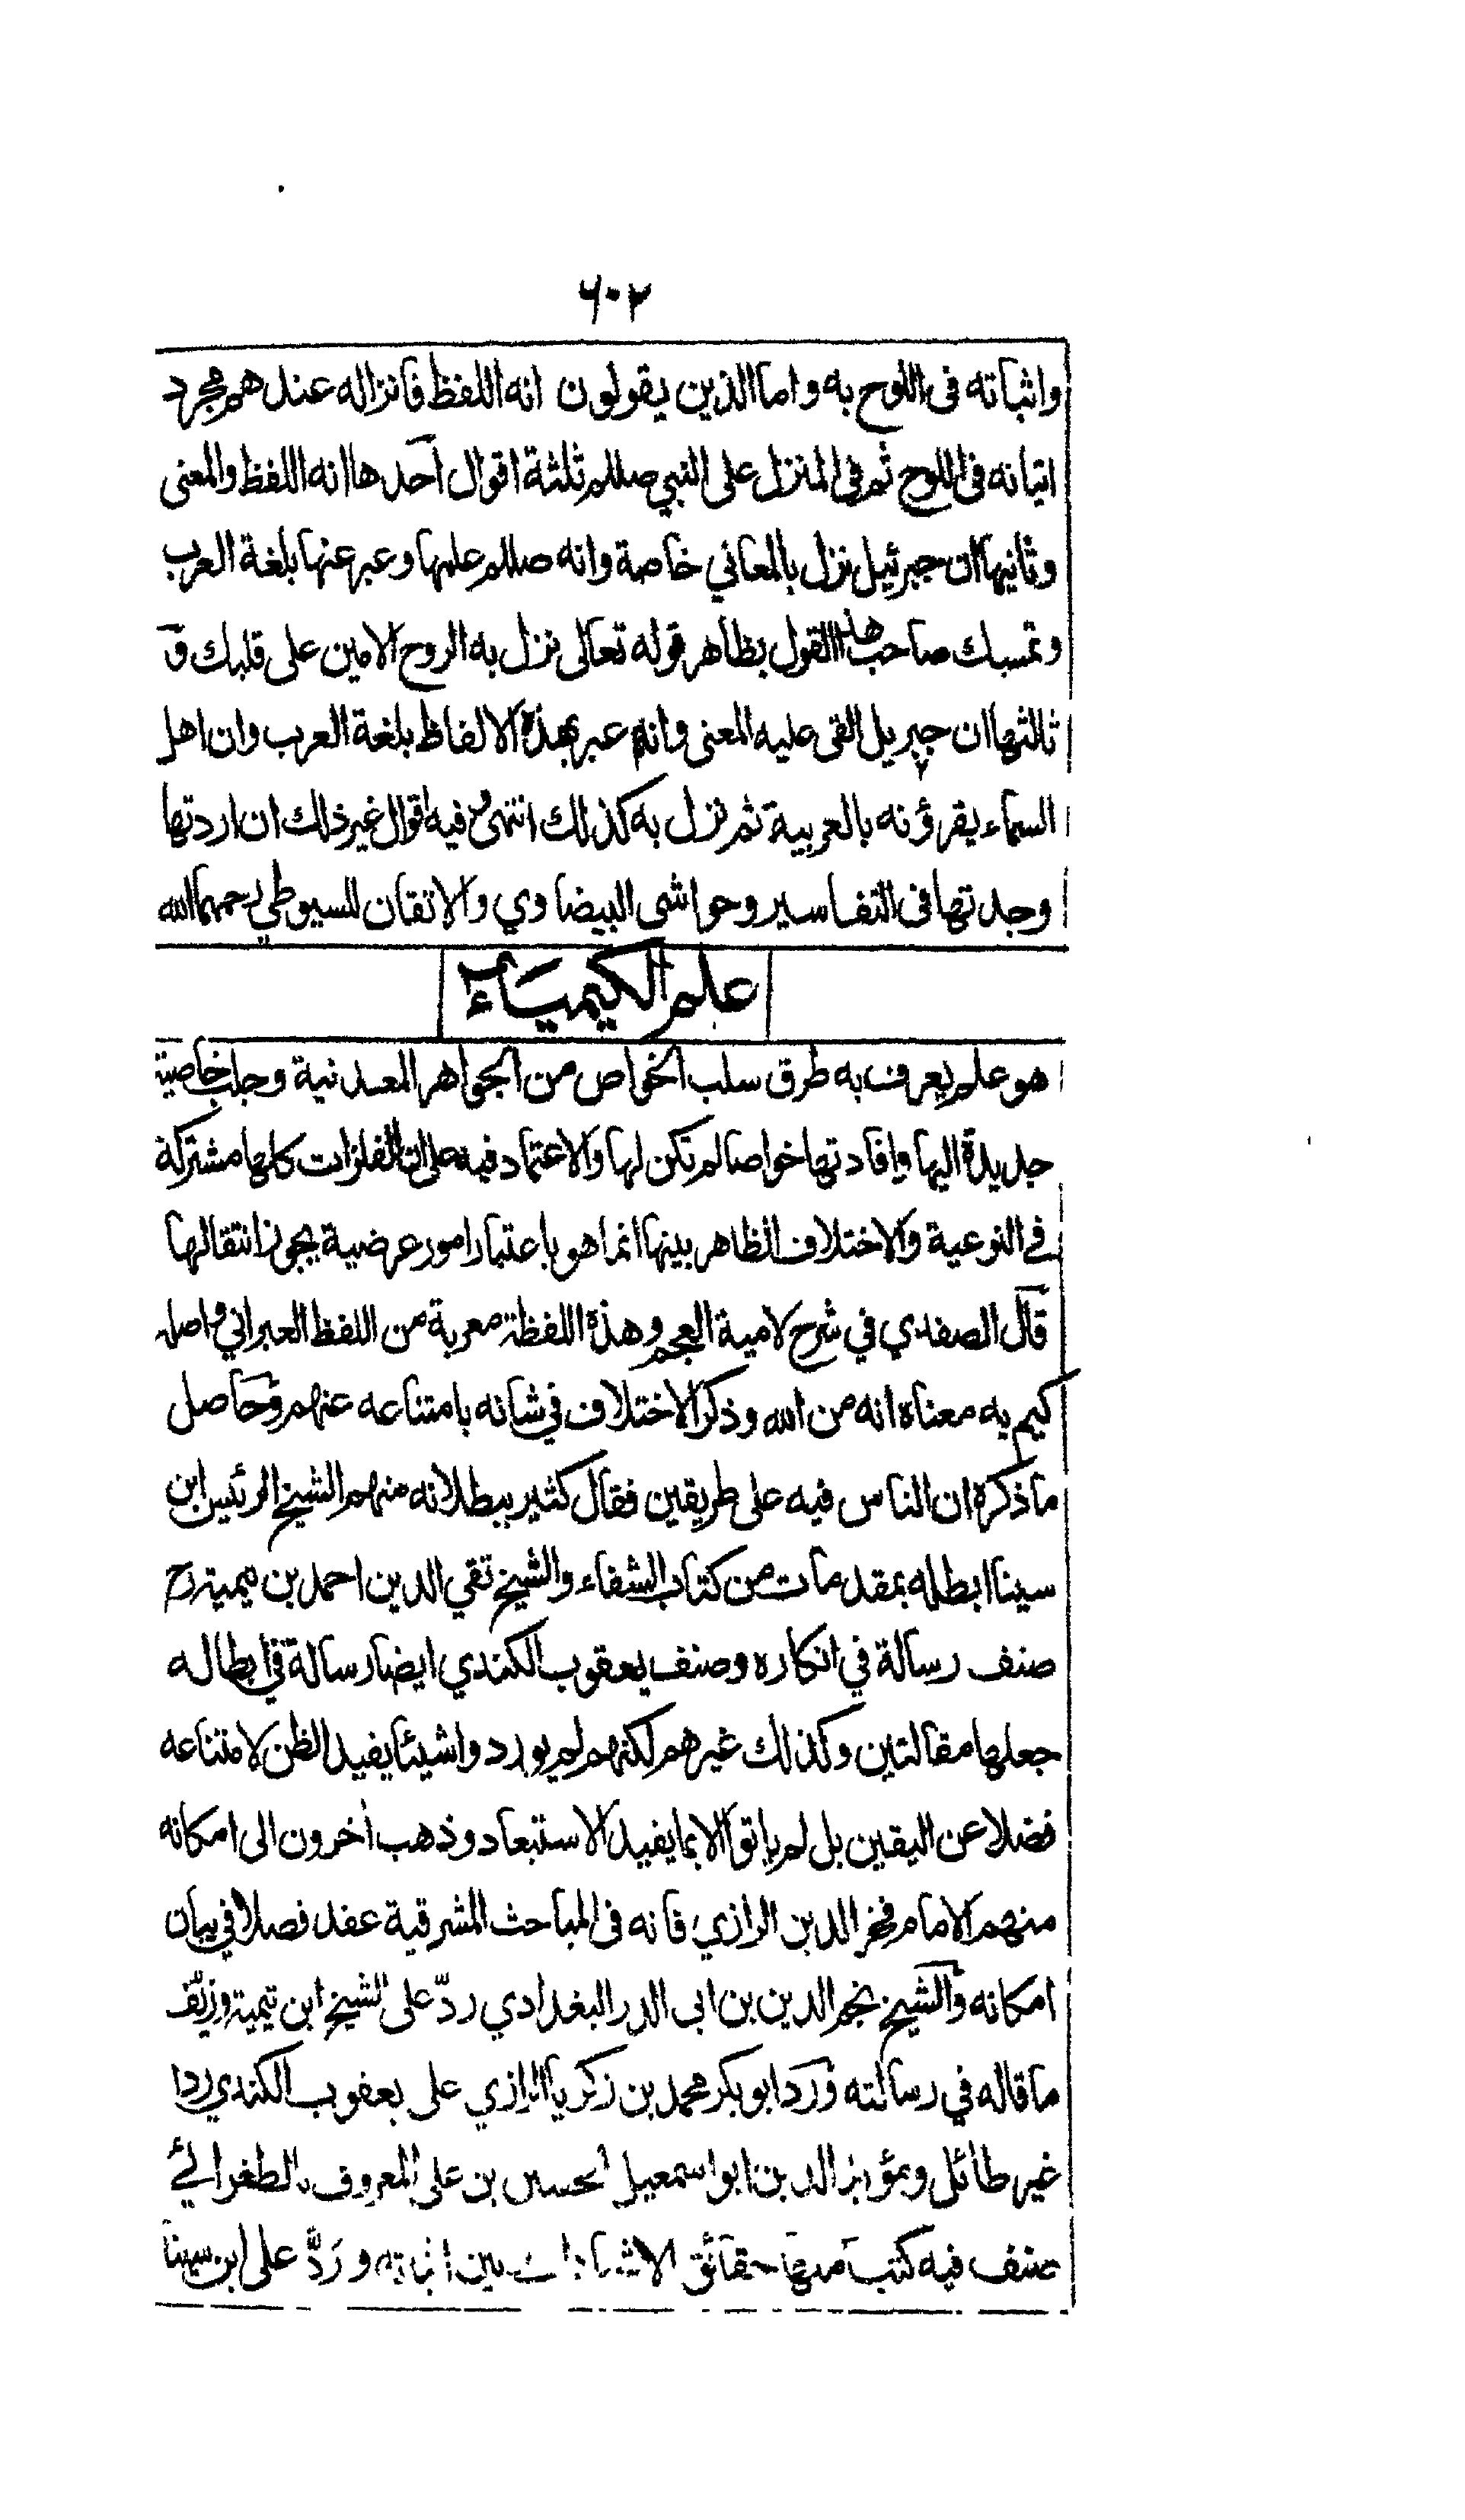 ٦٠٢
واثباته فى اللوح به واما الذين يقولون انه اللفظ فانزاله عندهم مجرد
اتيانه فى اللوح ثم فى المنزل على النبي صللم ثلثة اقوال احدها انه اللفظ والمعنى
وثانيها ان جبرئيل نزل بالمعاني خاصة وانه صللم علمها وعبر عنها بلغة العرب
وتمسك صاحب هذا القول بظاهر قوله تعالى نزل به الروح الامين على قلبك و
ثالثها ان جبريل القى عليه المعنى وانه عبر بهذه الالفاظ بلغة العرب وان اهل
السماء يقرؤنه بالعربية ثم نزل به كذلك انتهى وفيه اقوال غير ذلك ان اردتها
وجدتها فى التفاسير وحواشى البيضاوي والاتقان للسيوطي رحمهما الله
علم الكيمياء
هو علم يعرف به طرق سلب الخواص من الجواهر المعدنية وجلب خاصية
جديدة اليها وافادتها خواصا لم تكن لها والاعتماد فيه على ان الفلزات كلها مشتركة
في النوعية والاختلاف الظاهر بينها انما هو باعتبار امور عرضية يجوز انتقالها
قال الصفدي في شرح لامية العجم وهذه اللفظة معربة من اللفظ العبراني واصله
كيم يه معناه انه من الله وذكر الاختلاف في شانه بامتناعه عنهم وحاصل
ما ذكره ان الناس فيه على طريقين فقال كثير ببطلانه منهم الشيخ الرئيس ابن
سينا ابطله بمقدمات من كتاب الشفاء والشيخ تقي الدين احمد بن تيمية رح
صنف رسالة في انكاره وصنف يعقوب الكندي ايضا رسالة في ابطاله
جعلها مقالتين وكذلك غيرهم لكنهم لم يوردوا شيئا يفيد الظن لامتناعه
فضلا عن اليقين بل لم ياتوا الا بما يفيد الاستبعاد وذهب اخرون الى امكانه
منهم الامام فخر الدين الرازي فانه فى المباحث المشرقية عقد فصلا في بيان
امكانه والشيخ نجم الدين بن ابى الدر البغدادي ردّ على الشيخ ابن تيمية وزيّف
ما قاله في رسالته ورد ابو بكر محمد بن زكريا الرازي على يعقوب الكندي ردا
غير طائل ومؤيد الدين ابو اسمعيل الحسين بن على المعروف بالطغرائي
صنف فيه كتبا منها حقائق الاشهادات بين اثباته وردّ على ابن سينا